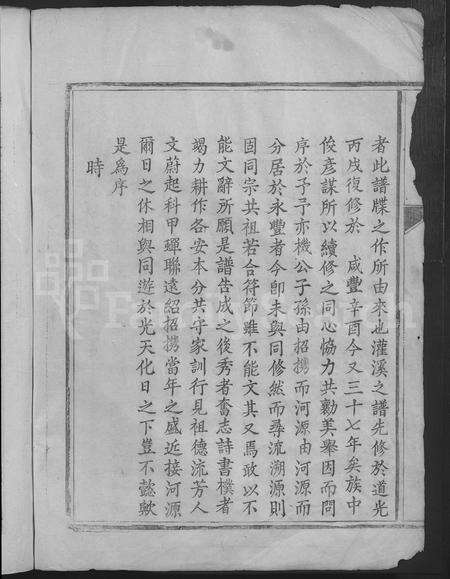 者此譜牒之作所由來也灌溪之譜先修於道光
丙戌復修於　咸豐辛酉今又三十七年矣族中
俊彥謀所以續修之同心恊力共勷美舉因而問
序於予予亦機公子孫由招携而河源由河源而
分居於永豐者今卽未與同修然而尋流溯源則
固同宗共祖若合符節雖不能文其又焉敢以不
能文辭所願是譜告成之後秀者奮志詩書樸者
竭力耕作各安本分共守家訓行見祖德流芳人
文蔚起科甲蟬聯遠紹招携當年之盛近接河源
爾日之休相與同遊於光天化日之下豈不懿歟
是爲序
時